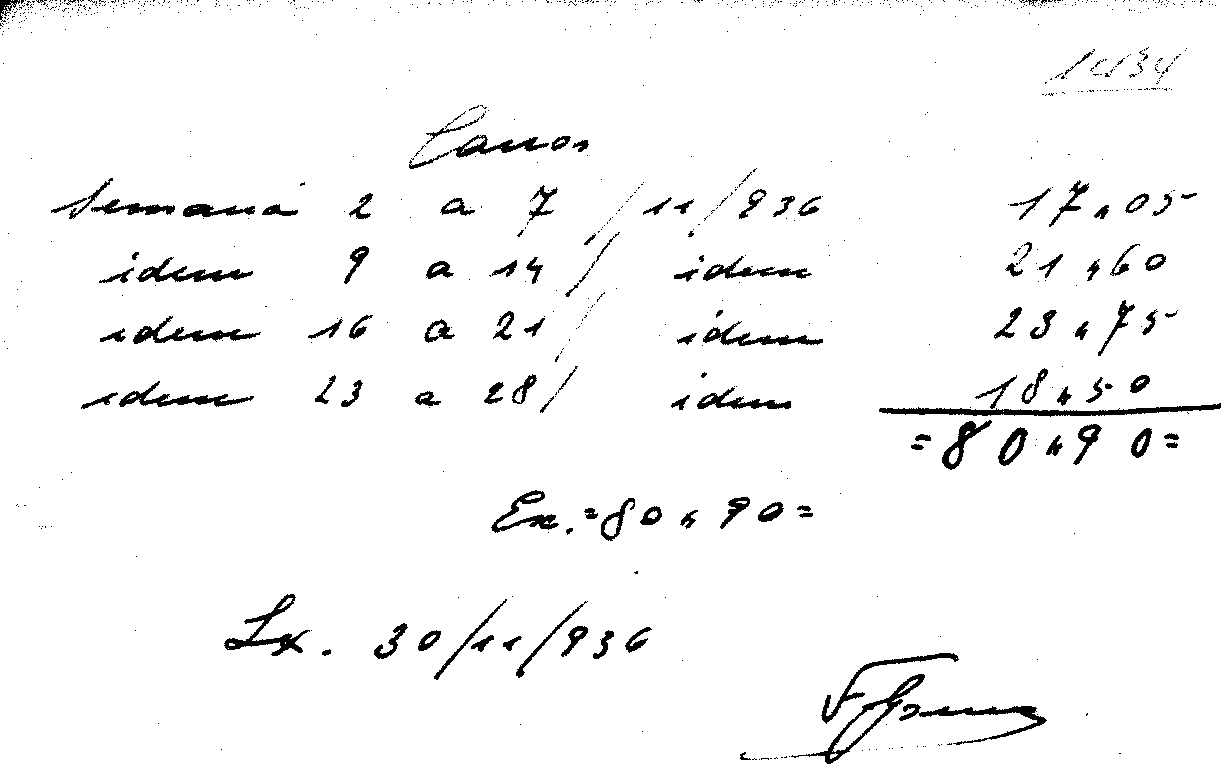 1434
Carros
Semana 2 a 7 / 11 / 936 17,,05
idem 9 a 14 / idem 21,,60
idem 16 a 21 / idem 23,,75
idem 23 a 28 / idem 18,,50
=80,,90=
En.=80,,90=
Lx. 30/11/936